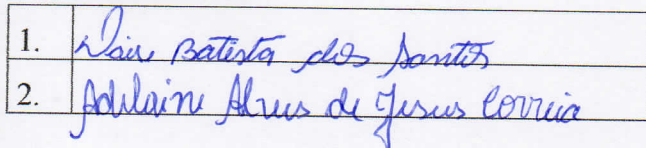 1. Batista dos Santos
2. Adelaine Alves de Jesus Correia